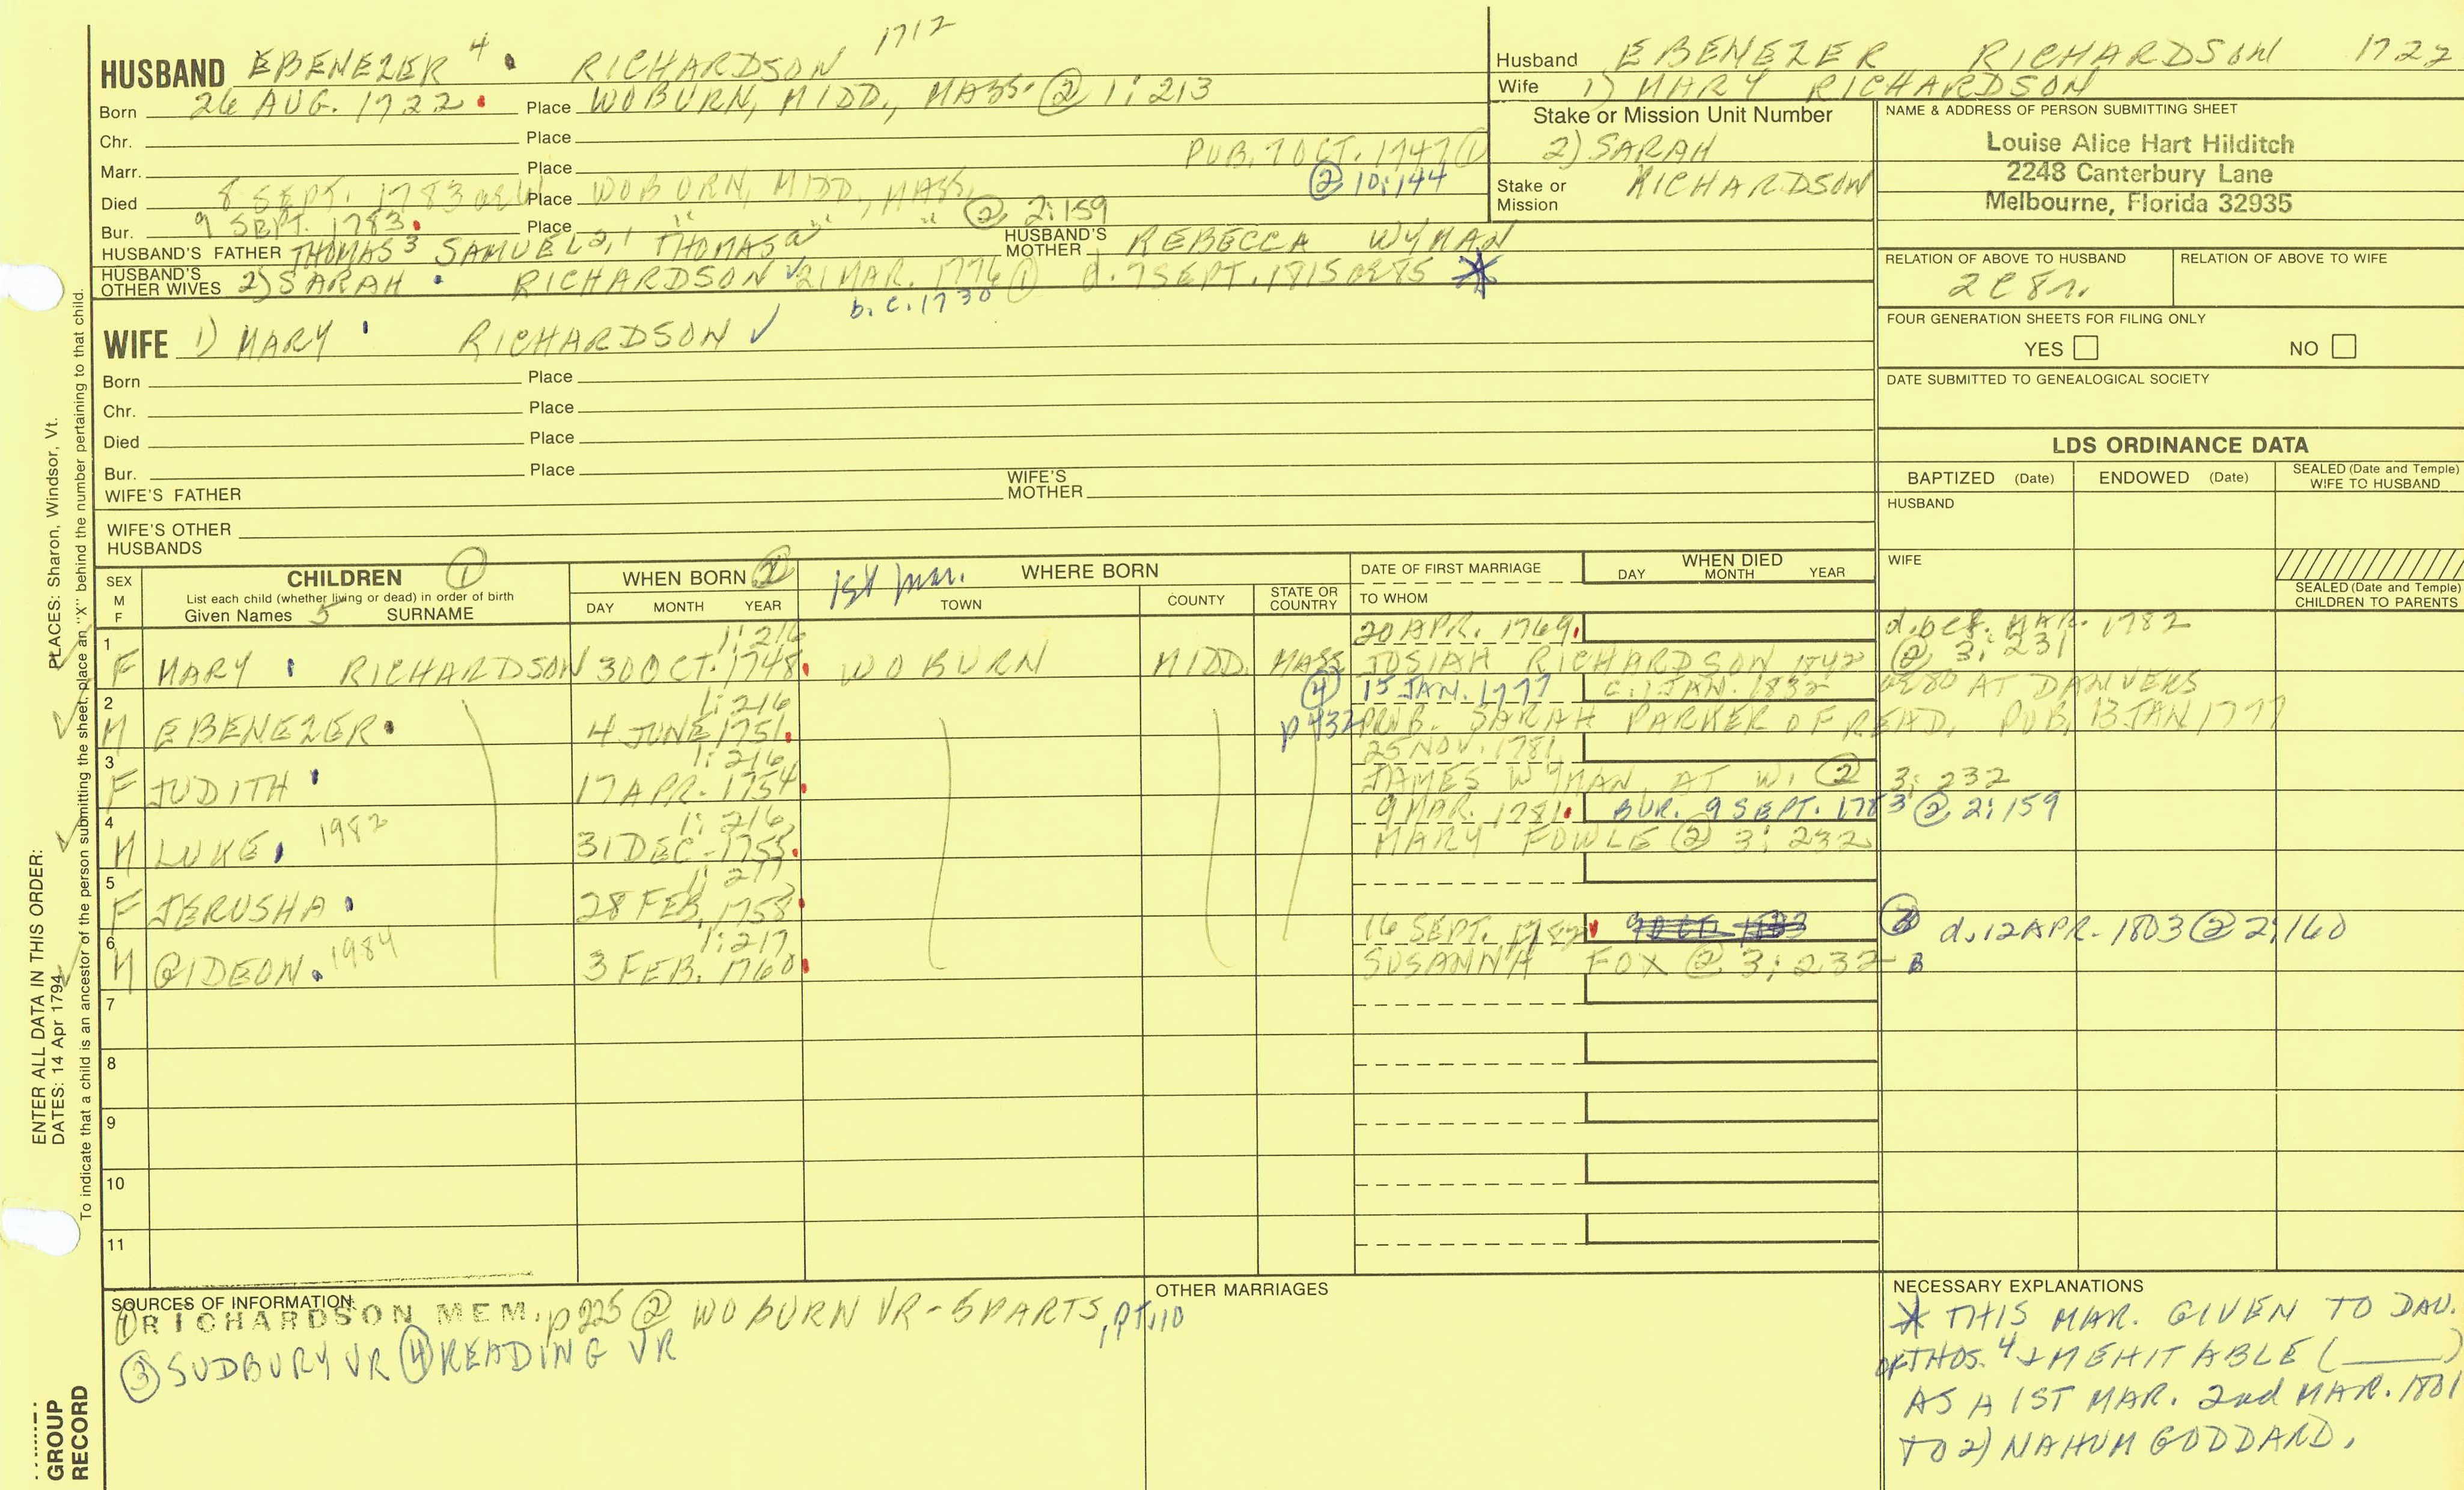 1712
HUSBAND EBENEZER 4 . RICHARDSON
Born 26 AUG. 1722 . Place WOBURN, MIDD., MASS. @ 1:213
Chr. Place
Marr. Place PUB. 7 OCT. 1747 ①
② 10:144
Died 8 SEPT. 1783 Place WOBURN, MIDD., MASS.
Bur. 9 SEPT. 1783. Place " " " @ 2:159
HUSBAND'S FATHER THOMAS 3 SAMUEL 2, 1 THOMAS HUSBAND'S MOTHER REBECCA WYMAN
HUSBAND'S OTHER WIVES 2) SARAH . RICHARDSON ✓ 21 MAR. 1776 ① d. 7 SEPT. 1815 ae 85 *
b. c. 1730
WIFE 1) MARY RICHARDSON ✓
Born Place
Chr. Place
Died Place
Bur. Place
WIFE'S FATHER WIFE'S MOTHER
WIFE'S OTHER HUSBANDS
Husband EBENEZER RICHARDSON 1722
Wife 1) MARY RICHARDSON
Stake or Mission Unit Number
2) SARAH
Stake or Mission RICHARDSON
NAME & ADDRESS OF PERSON SUBMITTING SHEET
Louise Alice Hart Hilditch
2248 Canterbury Lane
Melbourne, Florida 32935
RELATION OF ABOVE TO HUSBAND RELATION OF ABOVE TO WIFE
2C8r.
FOUR GENERATION SHEETS FOR FILING ONLY
YES NO
DATE SUBMITTED TO GENEALOGICAL SOCIETY
LDS ORDINANCE DATA
BAPTIZED (Date) ENDOWED (Date) SEALED (Date and Temple) WIFE TO HUSBAND
HUSBAND
WIFE
SEALED (Date and Temple) CHILDREN TO PARENTS
SEX M F CHILDREN ① WHEN BORN ② 1st mar. WHERE BORN DATE OF FIRST MARRIAGE WHEN DIED
List each child (whether living or dead) in order of birth DAY MONTH YEAR TOWN COUNTY STATE OR COUNTRY TO WHOM DAY MONTH YEAR
Given Names 5 SURNAME
1 1:216 20 APR. 1769. d. bef. MAR. 1782
F MARY RICHARDSON 30 OCT. 1748. WOBURN MIDD. MASS. JOSIAH RICHARDSON 1842 @ 3:231
2 1:216 ④ 15 JAN. 1777 c. 1 JAN. 1832 ae 80 AT DANVERS
M EBENEZER. 4 JUNE 1751. p 432 PROB. SARAH PARKER OF READ. PUB. 13 JAN 1777
3 1:216 25 NOV. 1781
F JUDITH 17 APR. 1754. JAMES WYMAN, AT W. ② 3:232
4 1:216 9 MAR. 1781. BUR. 9 SEPT. 1783 @ 2:159
M LUKE. 1982 31 DEC. 1755. MARY FOWLE @ 3:232
5 1:217
F JERUSHA . 28 FEB. 1758.
6 1:217 16 SEPT. d. 12 APR. 1803 @ 2:160
M GIDEON. 1984 3 FEB. 1760. SUSANNA FOX @ 3:232
7
8
9
10
11
SOURCES OF INFORMATION
① RICHARDSON MEM. p 225 ② WOBURN VR - 5 PARTS, pt. 10
③ SUDBURY VR ④ READING VR
OTHER MARRIAGES
NECESSARY EXPLANATIONS
* THIS MAR. GIVEN TO DAU.
OF THOS. 4 + MEHITABLE (____)
AS A 1ST MAR. 2nd MAR. 1801
TO 2) NAHUM GODDARD.
PLACES: Sharon, Windsor, Vt.
To indicate that a child is an ancestor of the person submitting the sheet, place an "X" behind the number pertaining to that child.
ENTER ALL DATA IN THIS ORDER:
DATES: 14 Apr 1794
GROUP
RECORD